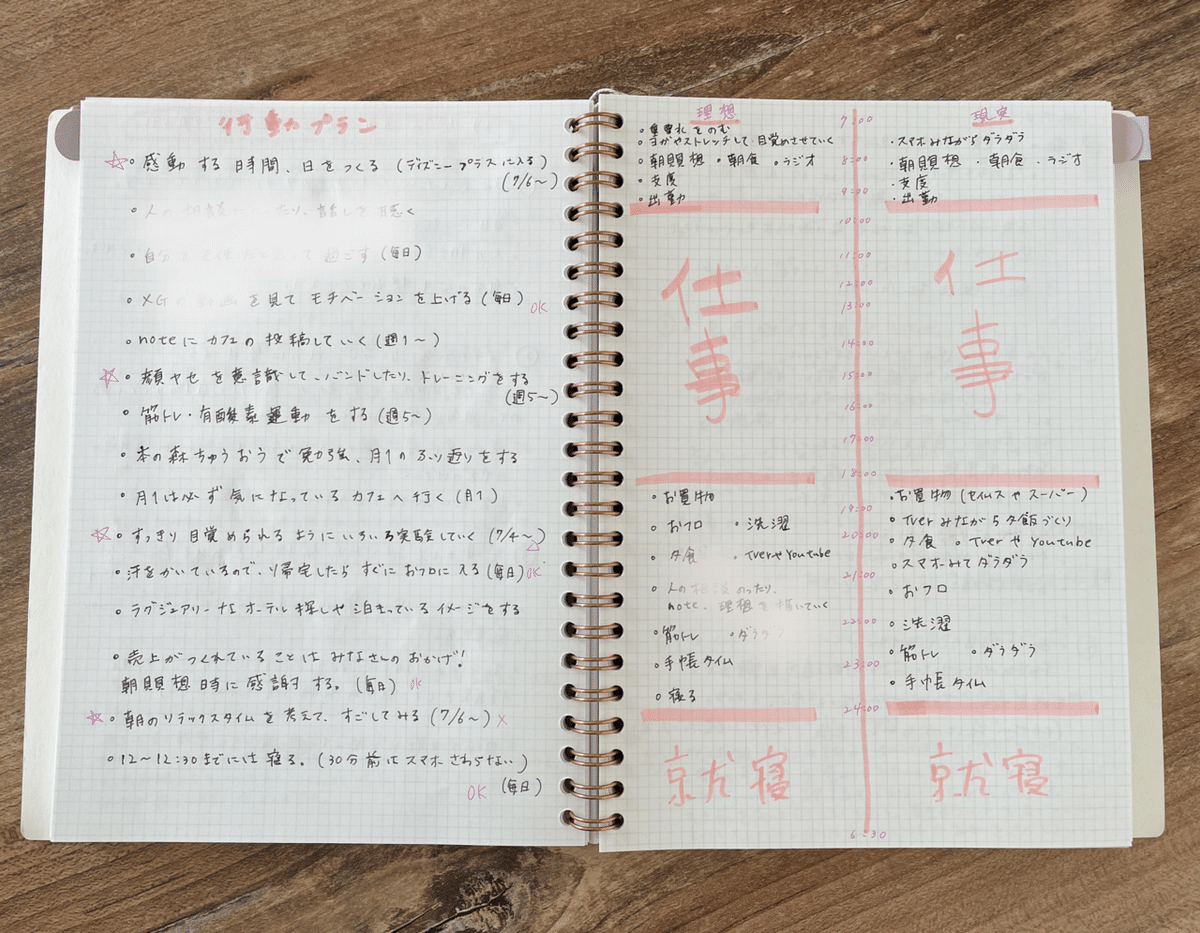 行動プラン
☆・感動する時間、日をつくる (ディズニープラスに入る)
(7/6〜)
・人の相談にのったり、話しを聴く
・自分を 過ごす (毎日)
・XGの動画を見てモチベーションを上げる (毎日) OK
・noteにカフェの投稿していく (週1〜)
☆・顔ヤセを意識して、バンドしたり、トレーニングをする
(週5〜)
・筋トレ・有酸素運動をする (週5〜)
・本の森ちゅうおうで勉強、月1のふり返りをする
・月1は必ず気になっているカフェへ行く (月1)
☆・すっきり目覚められるようにいろいろ実験していく (7/4〜) △
・汗をかいているので、帰宅したらすぐにおフロに入る (毎日) OK
・ラグジュアリーなホテル探しや泊まっているイメージをする
・売上がつくれていることはみなさんのおかげ!
朝瞑想時に感謝する。(毎日) OK
☆・朝のリラックスタイムを考えて、すごしてみる (7/6〜) ×
・12〜12:30までには寝る。(30分前はスマホさわらない)
OK (毎日)
理想
・をのむ
・ヨガやストレッチして目覚めさせていく
・朝瞑想 ・朝食 ・ラジオ
・支度
・出勤
仕事
・お買物
・おフロ ・洗濯
・夕食 ・TverやYoutube
・人の相談のったり、
note、理想を描いていく
・筋トレ ・ダラダラ
・手帳タイム
・寝る
就寝
7:00
8:00
9:00
10:00
11:00
12:00
13:00
14:00
15:00
16:00
17:00
18:00
19:00
20:00
21:00
22:00
23:00
24:00
6:30
現実
・スマホみながらダラダラ
・朝瞑想 ・朝食 ・ラジオ
・支度
・出勤
仕事
・お買物 (セイムスやスーパー)
・Tverみながら夕飯づくり
・夕食 ・TverやYoutube
・スマホみてダラダラ
・おフロ
・洗濯
・筋トレ ・ダラダラ
・手帳タイム
就寝